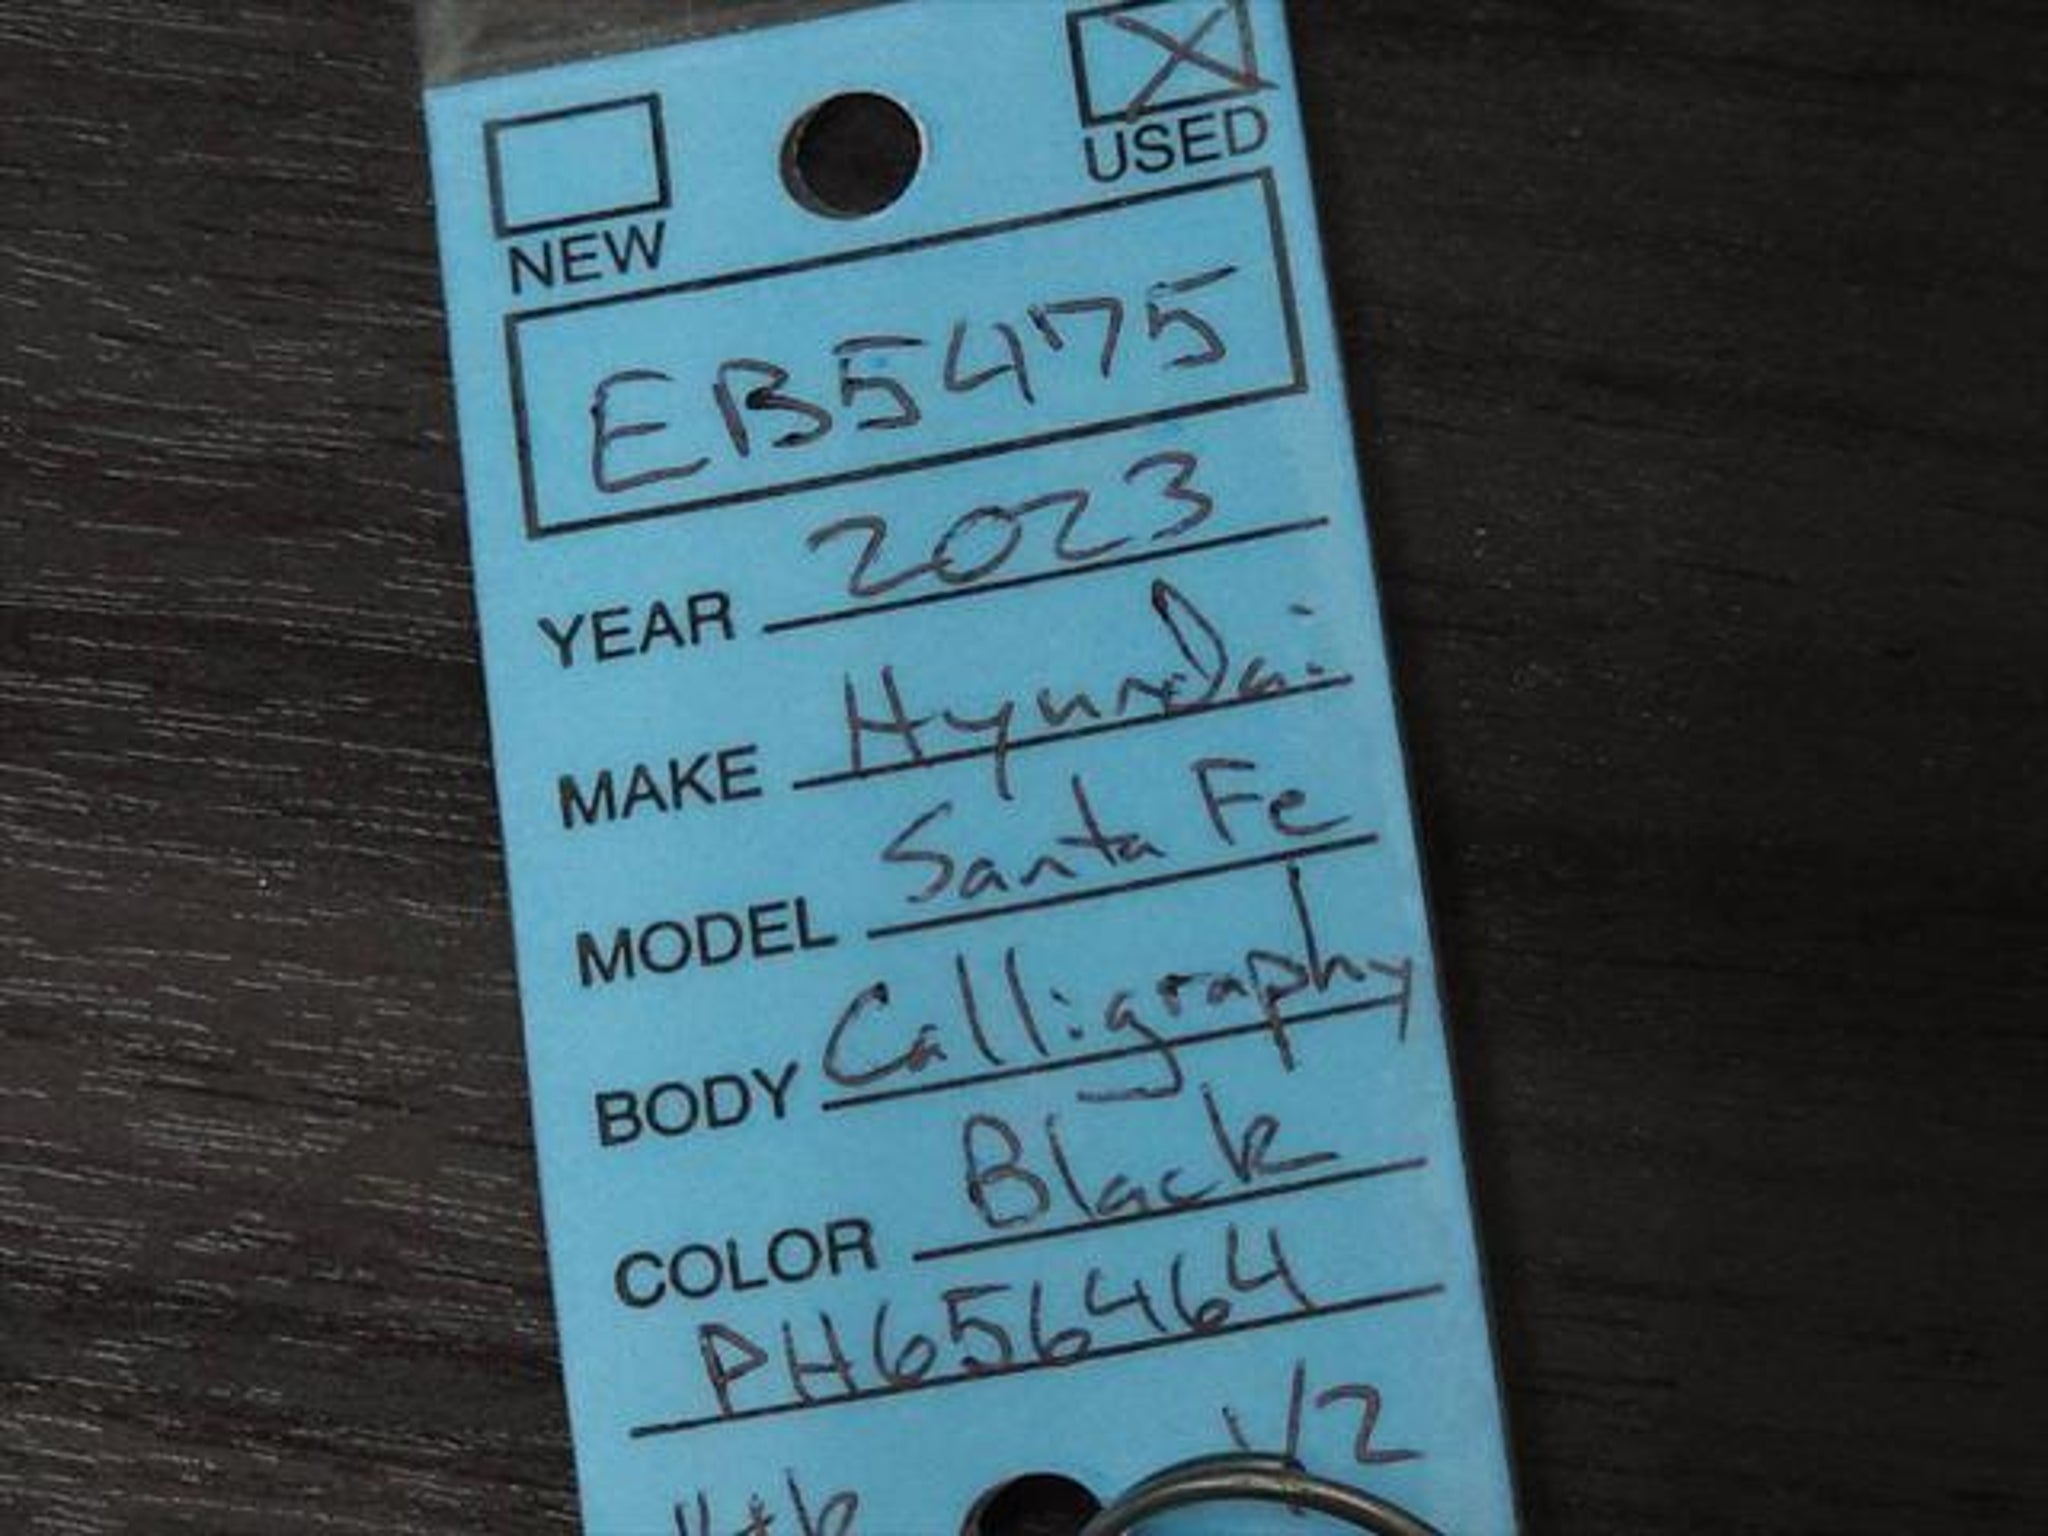 NEW USED
EB5475
YEAR 2023
MAKE Hyundai
MODEL Santa Fe
BODY Calligraphy
COLOR Black
PH656464
1/2